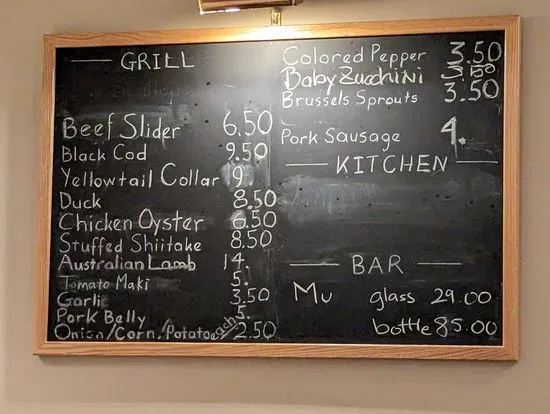 GRILL
Beef Slider 6.50
Black Cod 9.50
Yellowtail Collar 9.
Duck 8.50
Chicken Oyster 6.50
Stuffed Shiitake 8.50
Australian Lamb 14.
Tomato Maki 5.
Garlic 3.50
Pork Belly 5.
Onion/Corn/Potato each 2.50
Colored Pepper 3.50
Baby Zucchini 3.50
Brussels Sprouts 3.50
Pork Sausage 4.
KITCHEN
BAR
Mu glass 29.00
bottle 85.00